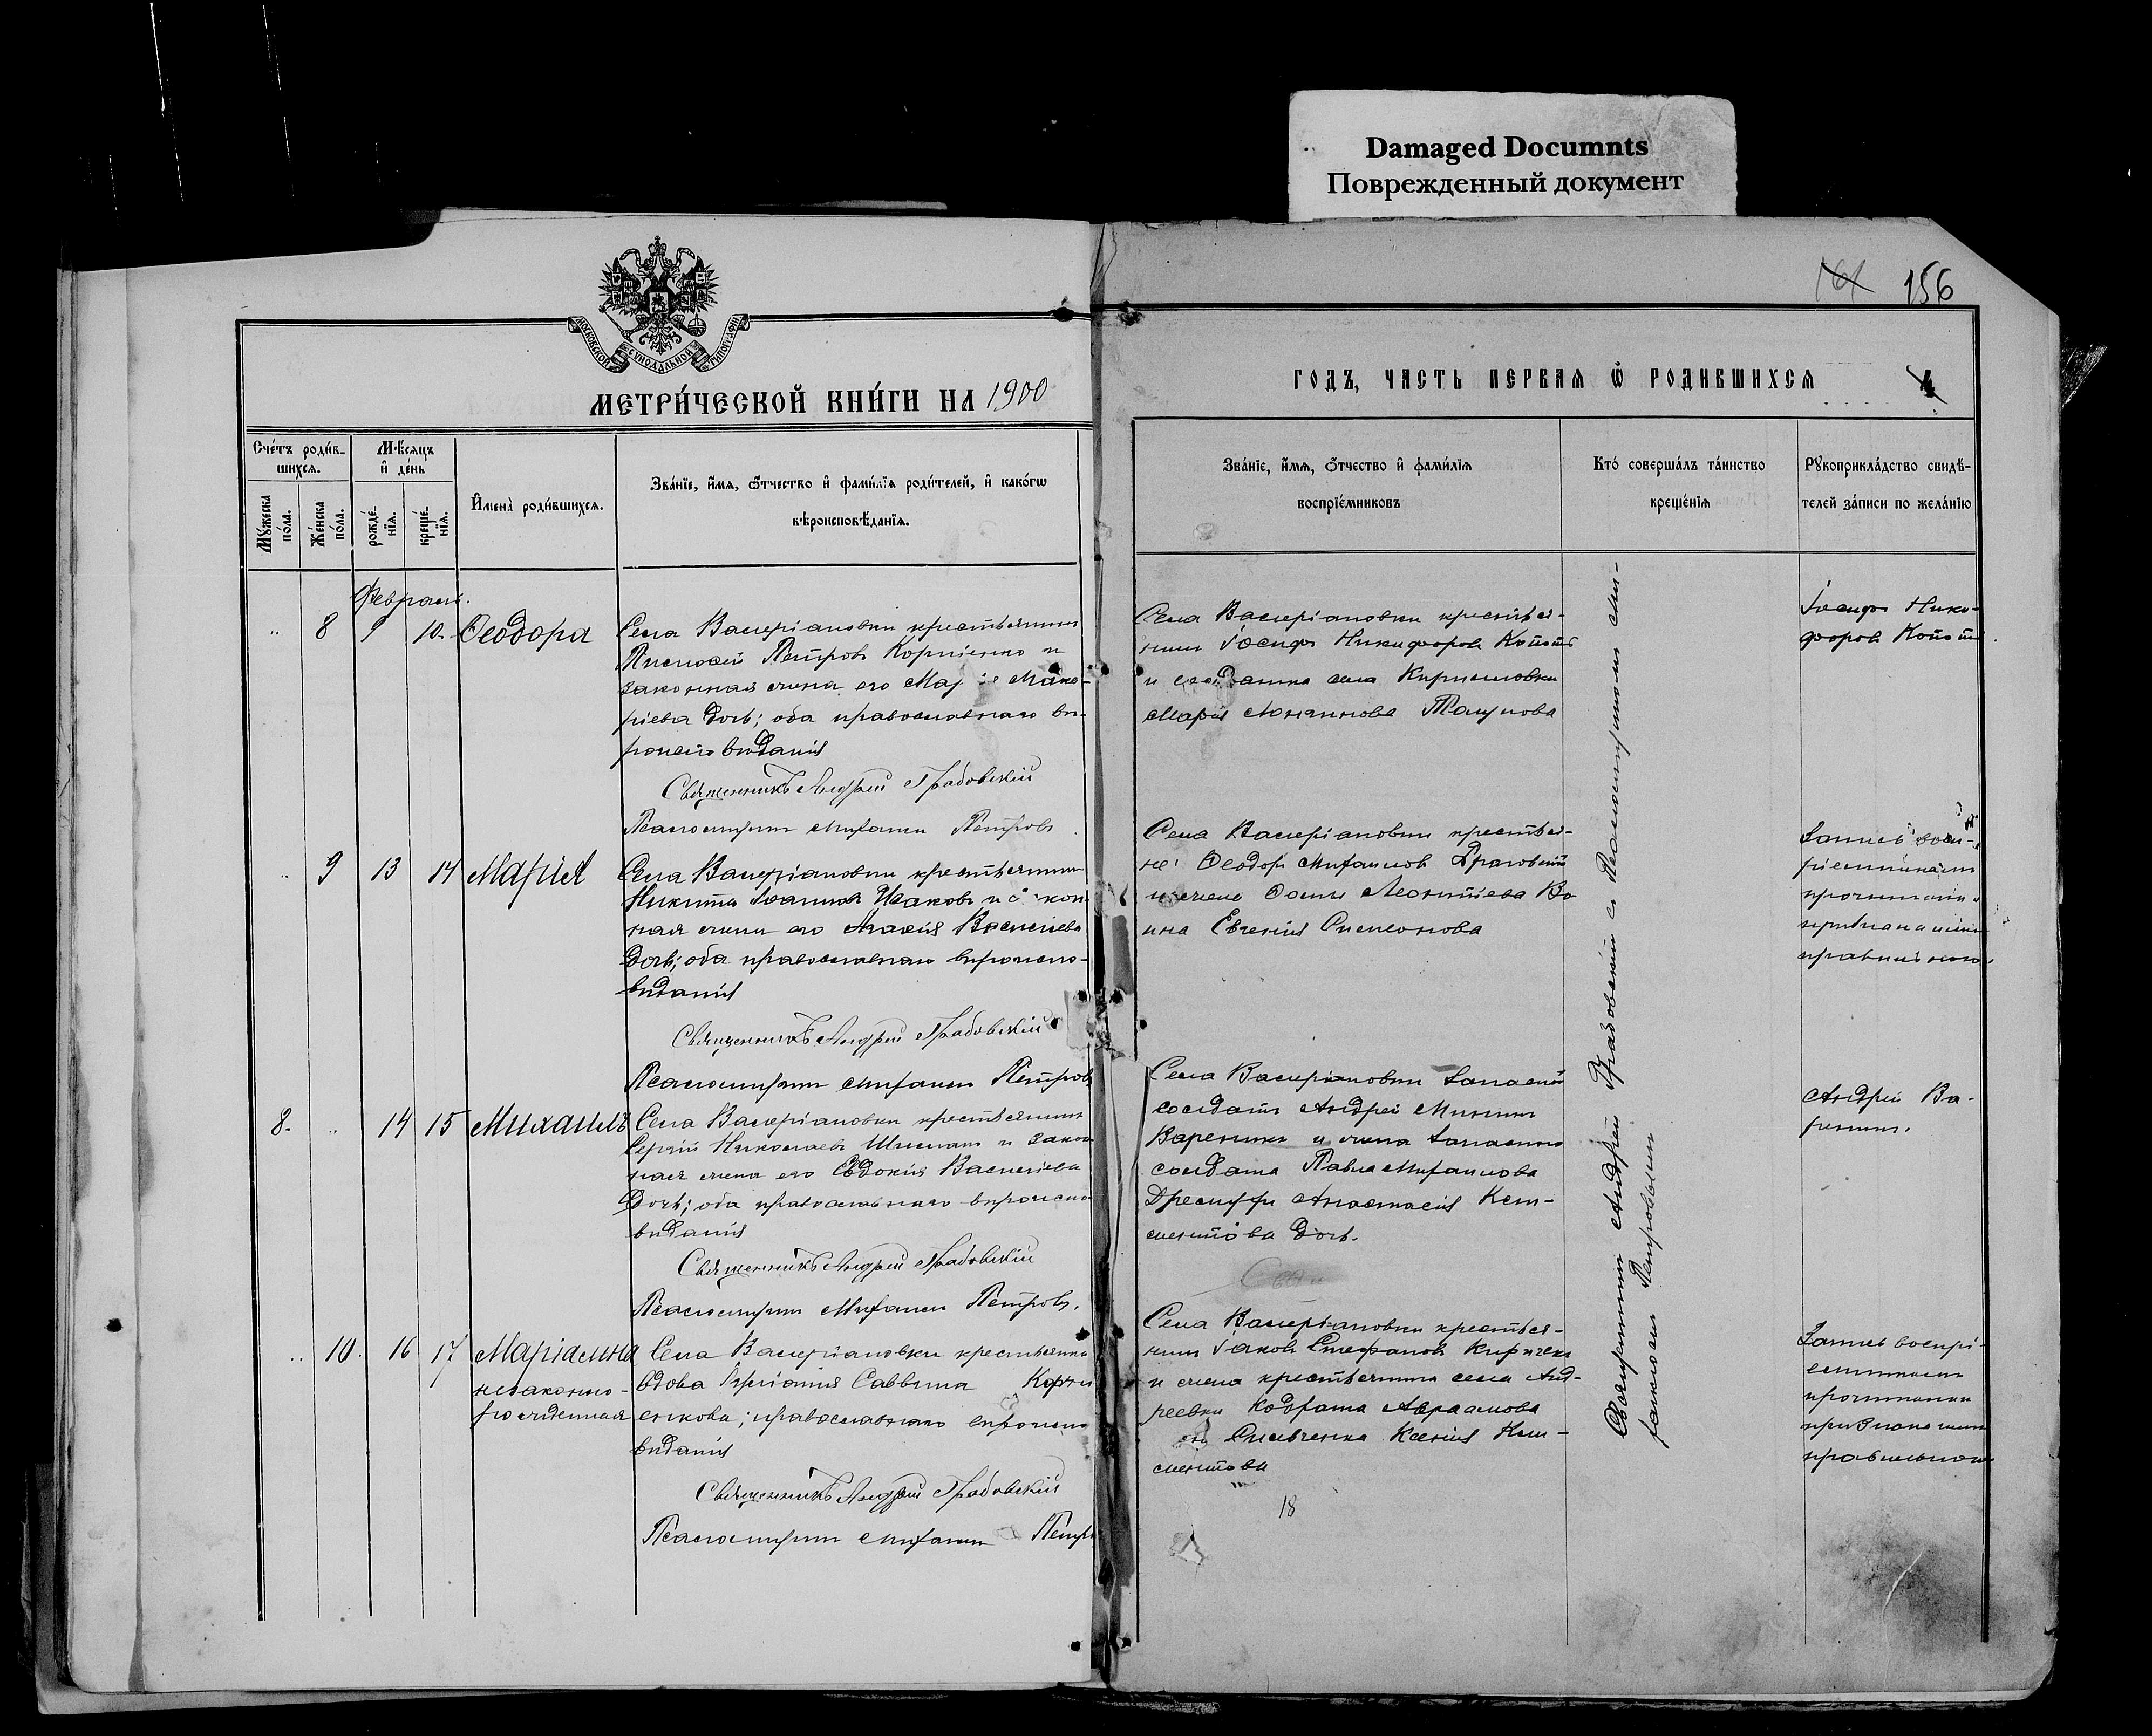 Damaged Documnts
Поврежденный документ
161 156
МОСКОВСКОЙ СѴНОДАЛЬНОЙ ТИПОГРАФІИ
МЕТРИ́ЧЕСКОЙ КНИ́ГИ НА 1900
ГОДЪ, ЧАСТЬ ПЕРВАЯ Ѡ РОДИВШИХСЯ 4
Сче́тъ роди́в-
шихся.
Мꙋжеска по́ла.
Же́нска по́ла.
Мѣ́сяцъ
и҆ де́нь
рожде́-
нїя.
креще́-
нїя.
И҆мена̀ роди́вшихся.
Зва́нїе, и҆́мя, ѻ҆́тчество и҆ фами́лїя роди́телей, и҆ како́гѡ
вѣроисповѣ́данїя.
Зва́нїе, и҆́мя, ѻ҆́тчество и҆ фами́лїя
воспрїе́мниковъ
Кто́ соверша́лъ та́инство
креще́нїя
Рꙋкоприкла́дство свидѣ́-
телей за́писи по жела́нїю
Февраль.
8 9 10. Ѳеодора
Села Валеріановки крестьянинъ
Петровъ Корніенко и
законная жена его Мака-
ріева дочь; оба православнаго вѣ-
роисповѣданія
Священникъ Андрей Грабовскій
Псаломщикъ Михаилъ Петровъ
Села Валеріановки крестья-
нинъ Іосифъ Никифоровъ
и солдатка села Кирилловки
Марія
Іосифъ Ники-
форовъ
9 13 14 Марія
Села Валеріановки крестьянинъ
Никита Іоанновъ Исаковъ и закон-
ная жена его Васильева
дочь; оба православнаго вѣроиспо-
вѣданія
Священникъ Андрей Грабовскій
Псаломщикъ Михаилъ Петровъ
Села Валеріановки крестья-
не: Ѳеодоръ Михаиловъ
и жена Леонтіева
Евгенія Симеонова
Запись воспріемниками
прочитана и
признана ими
правильною.
8. 14 15 Михаилъ
Села Валеріановки крестьянинъ
Сергій Николаевъ и закон
ная жена его Евдокія Васильева
дочь; оба православнаго вѣроиспо-
вѣданія
Священникъ Андрей Грабовскій
Псаломщикъ Михаилъ Петровъ.
Села Валеріановки запасный
солдатъ Андрей Мининъ
Вареникъ и жена запаснаго
солдата Павла Михаилова
Анастасія Кли-
ментова дочь.
Андрей Ва-
реникъ.
10. 16 17 Маріамна
незаконно-
рожденная
Села Валеріановки крестьянка
вдова Саввина Корни
енкова; православнаго вѣроиспо
вѣданія
Священникъ Андрей Грабовскій
Псаломщикъ Михаилъ Петр
Села Валеріановки крестья-
нинъ Іаковъ Стефановъ
и жена крестьянина села Анд-
реевки Кодрата Авраамова
Ксенія Кли-
ментова
18
Запись воспрі-
емниками
прочитана и
признана ими
правильною
Священникъ Андрей Грабовскій съ Псаломщикомъ Ми-
хаиломъ Петровымъ